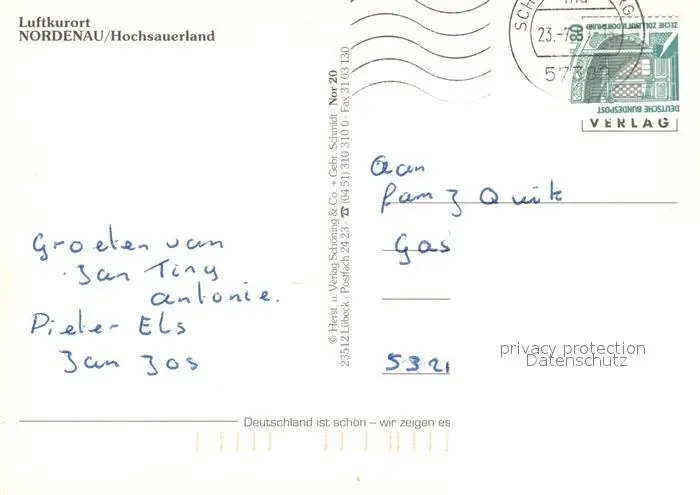 Luftkurort
NORDENAU/Hochsauerland
Groeten van
Jan Tiny
antonie.
Pieter Els
Jan Jos
© Herst. u. Verlag Schöning & Co. + Gebr. Schmidt · Nor 20
23512 Lübeck · Postfach 24 23 · ☎ (04 51) 310 310 0 · Fax 31 03 130
23.-7
DEUTSCHE BUNDESPOST
80
VERLAG
Aan
fam J Quik
Gas
5321
privacy protection
Datenschutz
Deutschland ist schön – wir zeigen es